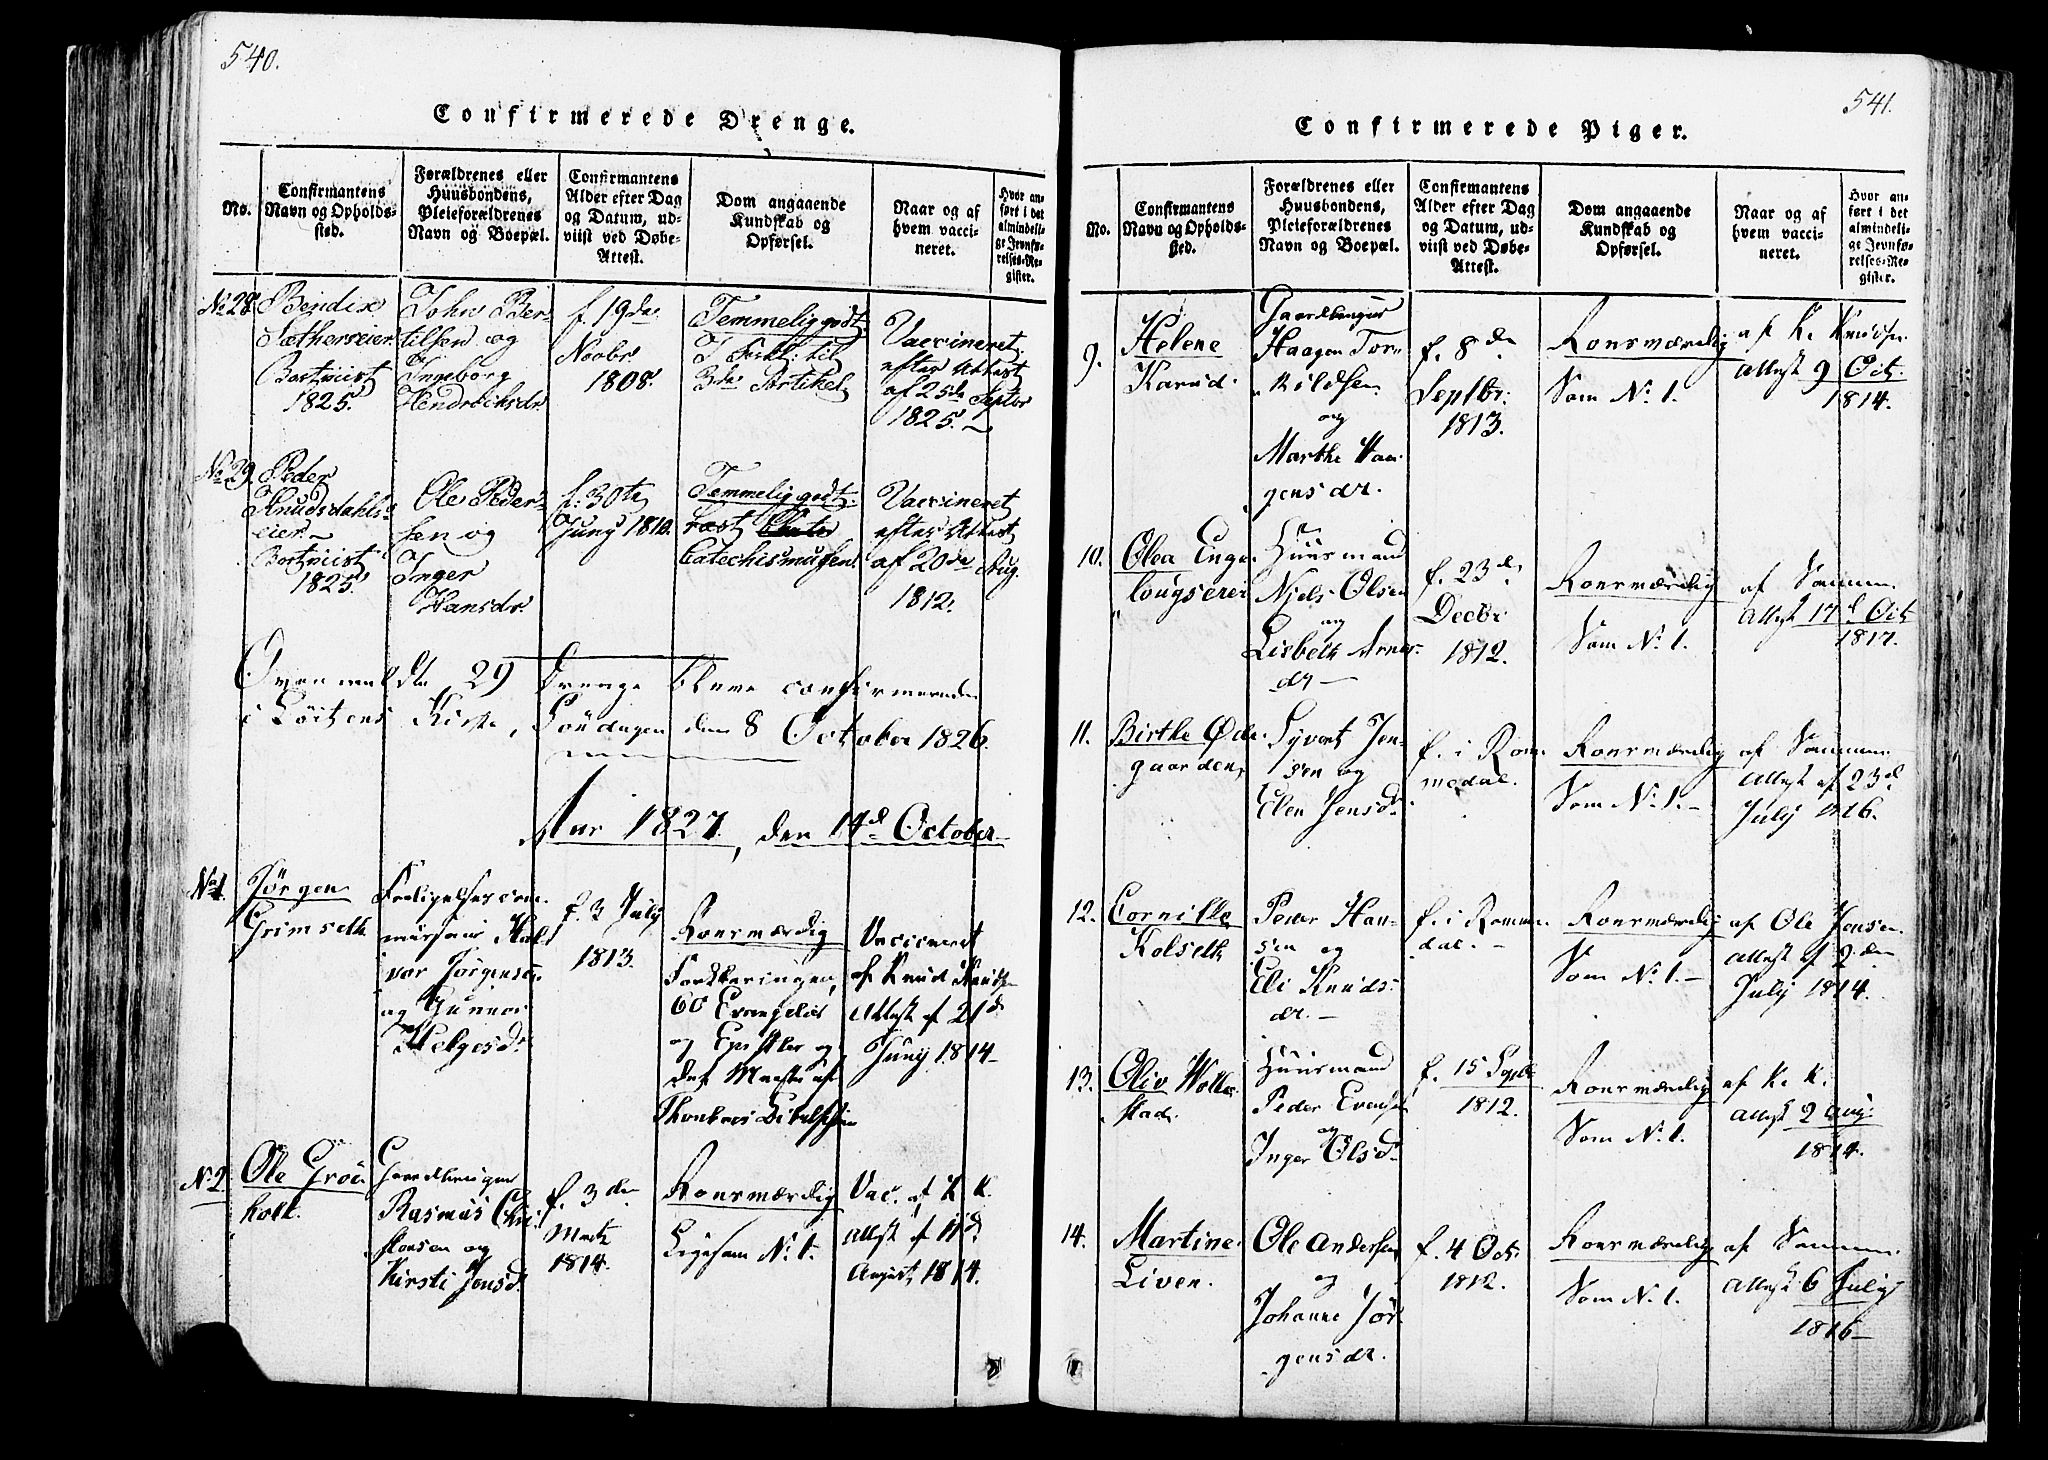 540.
Confirmerede Drenge.
No.
Confirmantens
Navn og Opholds-
sted.
Forældrenes eller
Huusbondens,
Pleieforældrenes
Navn og Boepæl.
Confirmantens
Alder efter Dag
og Datum, ud-
viist ved Døbe-
Attest.
Dom angaaende
Kundskab og
Opførsel.
Naar og af
hvem vacci-
neret.
Hvor an-
ført i det
almindeli-
ge Jevnfø-
relses-Re-
gister.
No 28
Bendix
Sætherseier
Bortviist
1825.
John Ber-
tilsen og
Ingeborg
Hendrichsdr.
f. 19de
Novbr
1808.
Temmelig godt
I Forkl: til
3die Artikel
Vaccineret
efter Attest
af 25de Septbr
1825.
No 29.
Peder
Knudsdahls-
eier
Bortviist
1825.
Ole Peder-
sen og
Inger
Hansdr
f. 30te
Juny 1810.
Temmelig godt.
Læst
Catechismussen
Vaccineret
efter Attest
af 20de Aug.
1812.
Ovenmeldte 29 Drenge bleve confirmerede
i Löitens Kirke, Söndagen den 8 October 1826.
Aar 1827, den 14d October
No 1
Jörgen
Grimseth
mursair Hal-
vor Jörgensen
og Gunnor
Helgesd.
f. 3 July
1813.
Roesværdig
Forklaringen,
60 Evangelier
og Epistler og
det Meste af
Vaccineret
af Knud Knudsen
Attest af 21d
Juny 1814
No 2
Ole Gröt-
holt.
Gaardbruger
Rasmus Chri-
stensen og
Kirsti Jonsd.
f. 3den
Marts
1814.
Roesværdig
Ligesom No 1.
Vac. af K. K.
Attest af 11d
August 1814.
541.
Confirmerede Piger.
No.
Confirmantens
Navn og Opholds-
sted.
Forældrenes eller
Huusbondens,
Pleieforældrenes
Navn og Boepæl.
Confirmantens
Alder efter Dag
og Datum, ud-
viist ved Døbe-
Attest.
Dom angaaende
Kundskab og
Opførsel.
Naar og af
hvem vacci-
neret.
Hvor an-
ført i det
almindeli-
ge Jevnfø-
relses-Re-
gister.
9.
Helene
Karud.
Gaardbruger
Haagen Tor-
kildsen
og
Marthe Haa-
gensdr.
f. 8de
Septbr:
1813.
Roesværdig
Som No 1.
af K. Knudsen
Attest 9 Oct.
1814.
10.
Olea Enge-
lougseie
Huusmand
Niels Olsen
og
Lisbeth Arnes-
dr
f. 23d.
Decbr
1812.
Roesværdig
Som No 1.
af Samme
Attest 17d Oct
1817.
11.
Birthe Øde-
gaarden,
Syvert Jen-
sen og
Elen Jensdr.
f. i Rom-
medal.
Roesværdig
Som No 1.
af Samme
Attest af 23d
July 1816.
12.
Cornille
Kolseth
Peder Han-
sen og
Eli Knuds-
dr.
f. i Romme-
dal.
Roesværdig
Som No 1.
af Ole Jensen
Attest af 2den
July 1814.
13.
Oliv Wolle-
stad.
Huusmand
Peder Evensen
og
Inger Olsd.
f. 15 Septbr
1812.
Roesværdig
Som No 1.
af K. K.
Attest 2 Aug.
1814.
14.
Martine
Liven.
Ole Andersen
og
Johanne Jör-
gensdr.
f. 4 Oct.
1812.
Roesværdig
Som No 1.
af Samme
Attest 6 July
1816